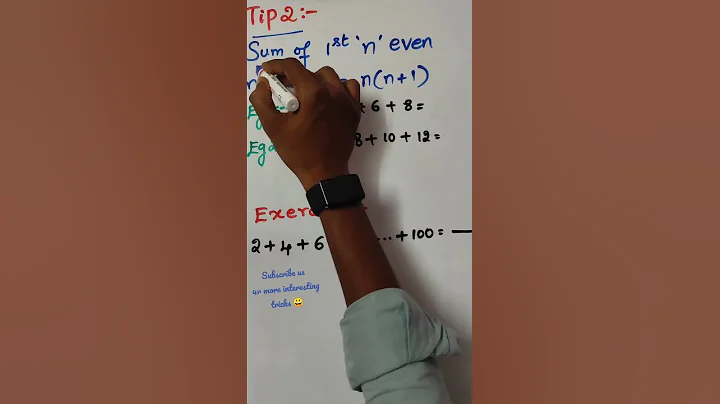 Tip 2:-
Sum of 1st 'n' even
n(n+1)
+ 6 + 8 =
8 + 10 + 12 =
2 + 4 + 6 ... + 100 =
Subscribe us
more interesting
tricks 😀